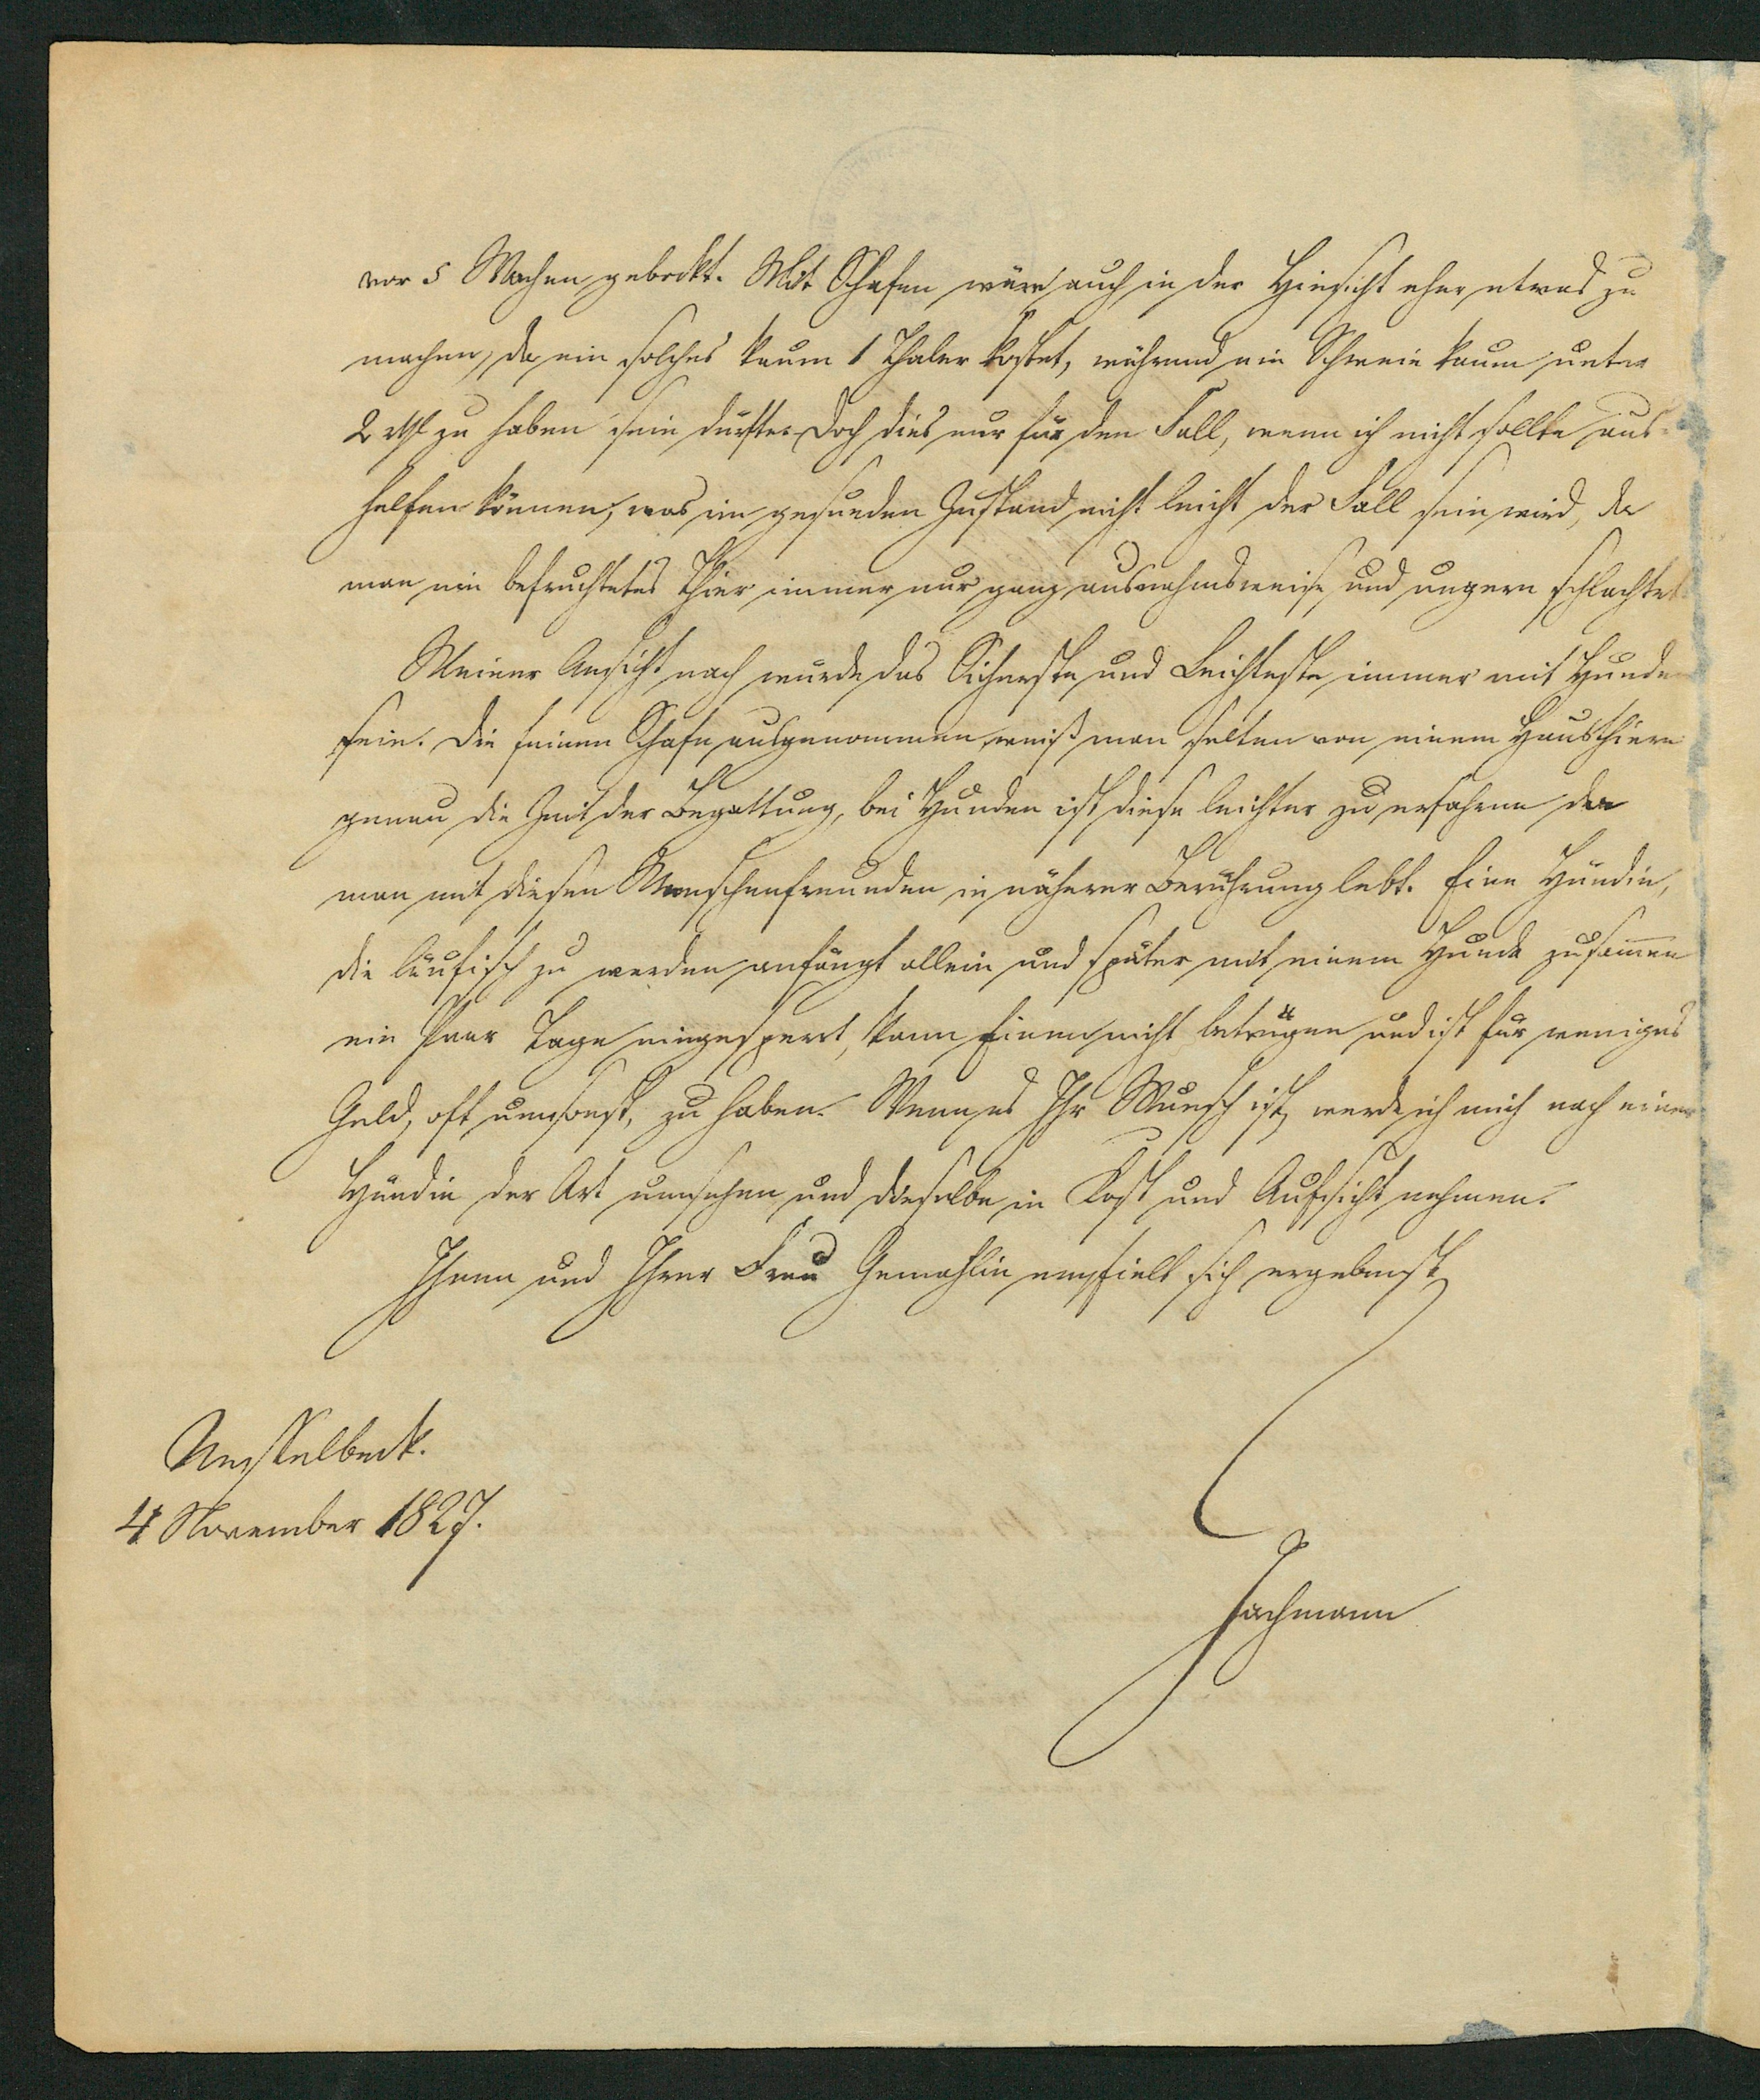 vor 5 Wochen gebockt. Mit Schafen wäre auch in der Hinsicht eher etwas zu
machen, da ein solches kaum 1 Thaler kostet, während ein Schwein kaum unter
2 rthl zu haben sein dürfte. Doch dies nur für den Fall, wenn ich nicht sollte aus-
helfen können, was im gesunden Zustand nicht leicht der Fall sein wird, da
man ein befruchtetes Thier immer nur ganz ausnahmsweise und ungern schlachtet.
Meiner Ansicht nach wurde das Sicherste und Leichteste immer mit Hunden
sein. Die feinen Schafe ausgenommen, weiß man selten von einem Hausthiere
genau die Zeit der Begattung, bei Hunden ist diese leichter zu erfahren da
man mit diesen Menschenfreunden in näherer Berührung lebt. Eine Hündin,
die läufisch zu werden anfängt allein und später mit einem Hunde zusammen
ein Paar Tage eingesperrt, kann Einen nicht betrügen und ist für weniges
Geld, oft umsonst, zu haben. Wenn es Ihr Wunsch ist, werde ich mich nach einer
Hündin der Art umsehen und dieselbe in Kost und Aufsicht nehmen.
Ihnen und Ihrer Frau Gemahlin empfielt sich ergebenst
Nesselbeck.
4 November 1827.
Jachmann